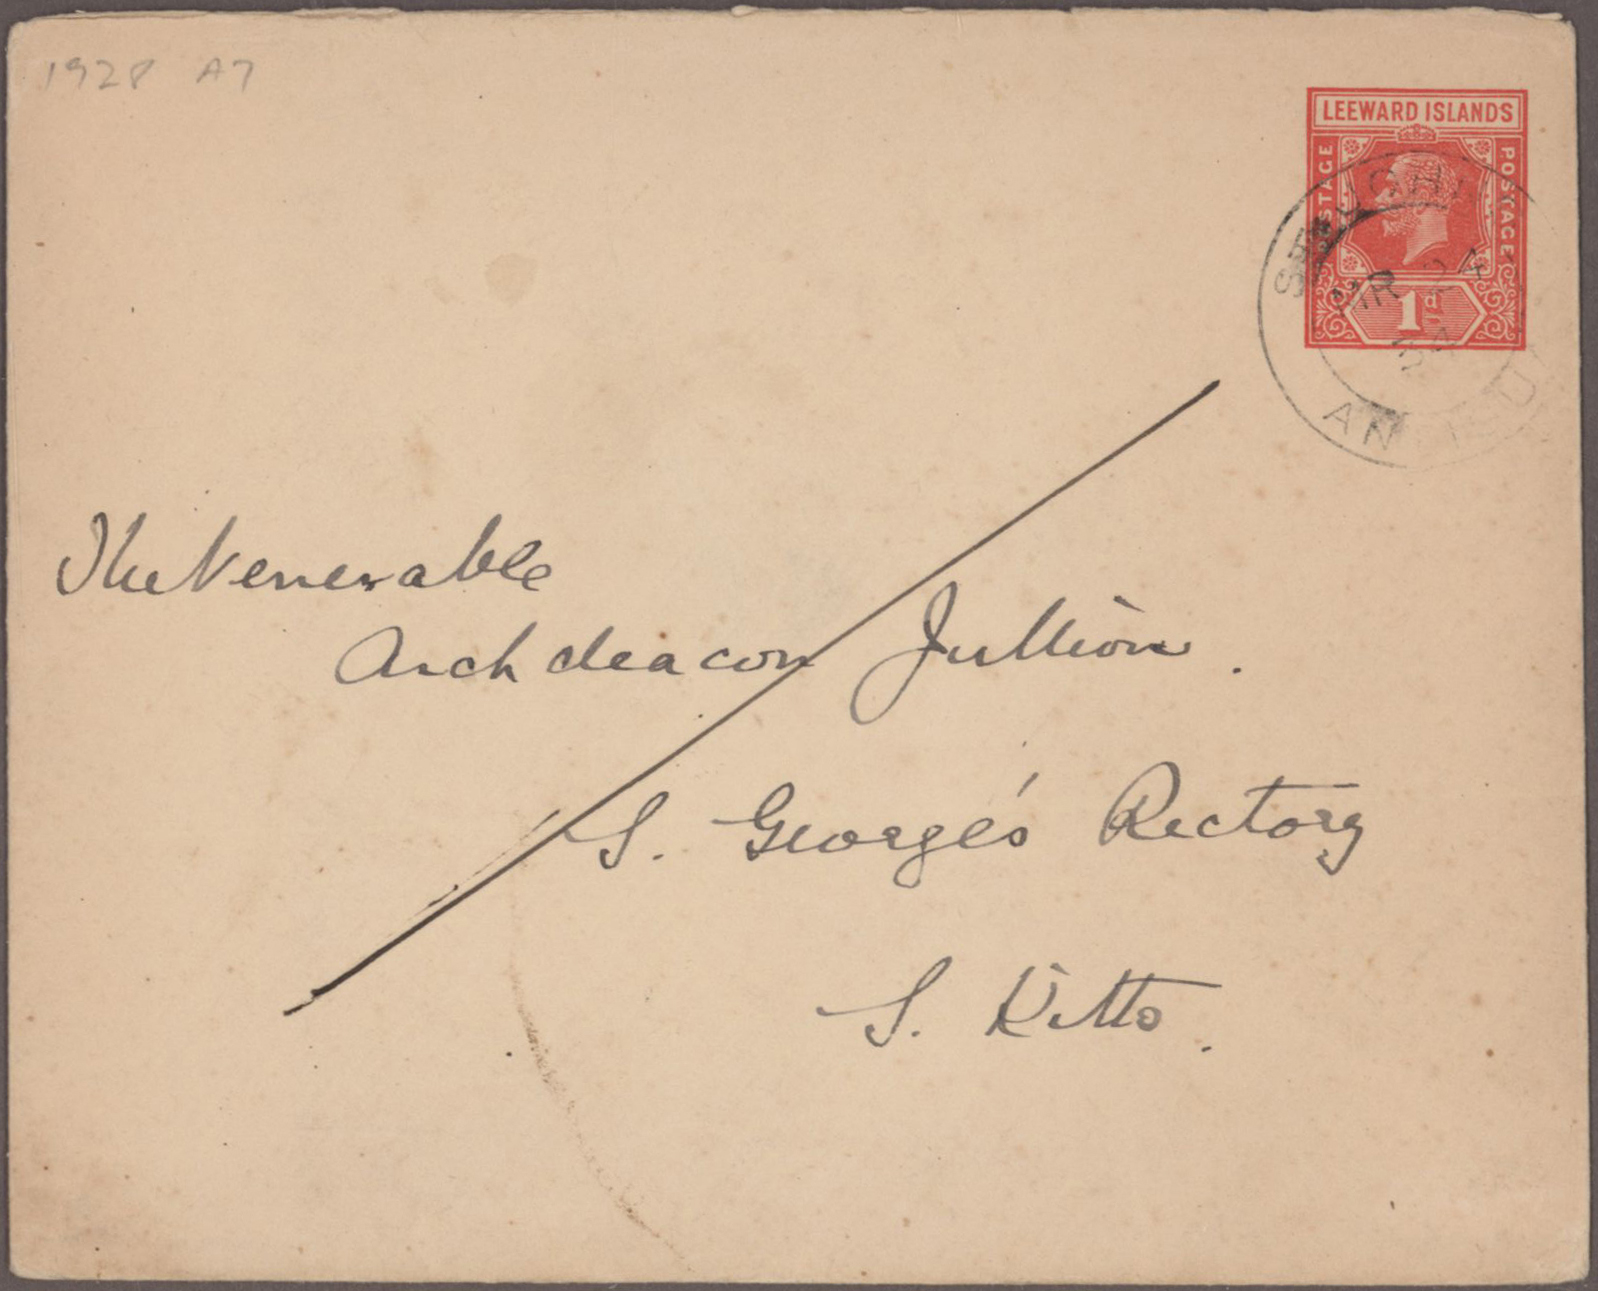 1928 A7
LEEWARD ISLANDS
POSTAGE
POSTAGE
1d
MR 24
34
The Venerable
Archdeacon Jullion.
S. George's Rectory
S. Kitts.